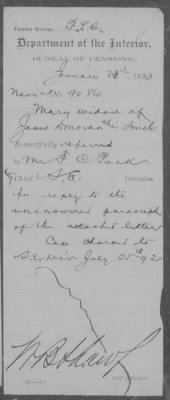 Finance Division, F.L.C.
Department of the Interior,
BUREAU OF PENSIONS,
January 1893
Navy 9086
Mary widow of
James Donovan Smith
Respectfully referred
to Mr. F C
Chief S.E. Division
for reply to the
unanswered paragraph
of the attached letter
Case charged to
S.E. Div July 92
Chief of Division.